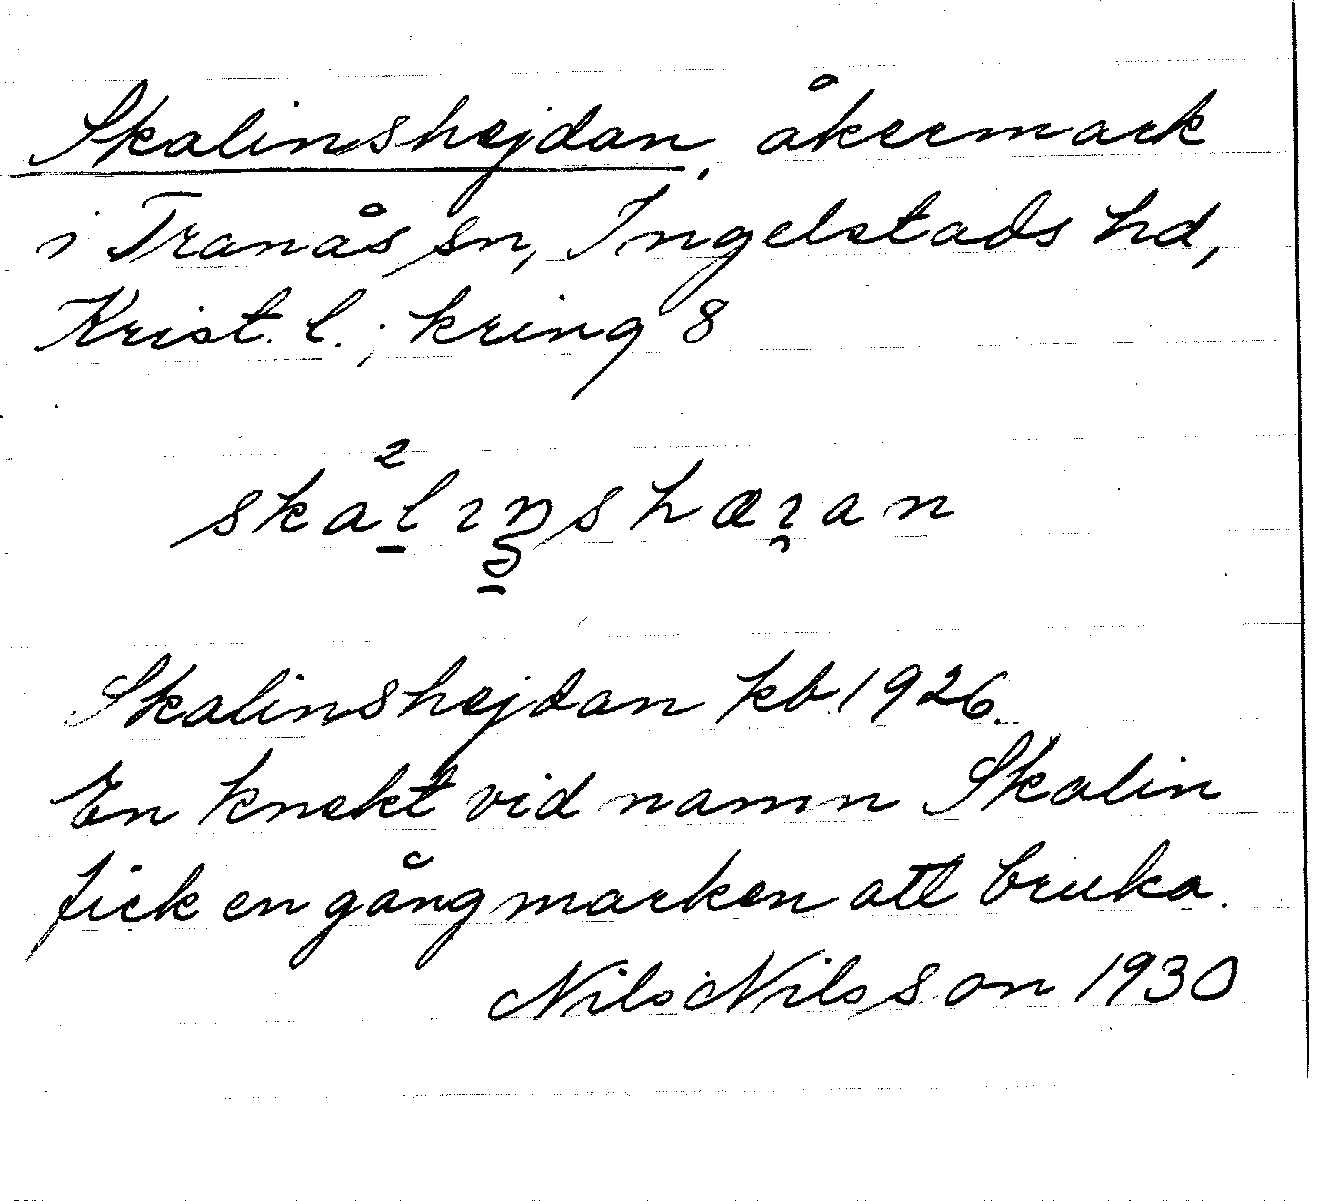 Skalinshejdan, åkermark
i Tranås sn, Ingelstads hd,
Krist. l.; kring 8
Skalinshejdan kb 1926.
En knekt vid namn Skalin
fick en gång marken att bruka.
Nils Nilsson 1930